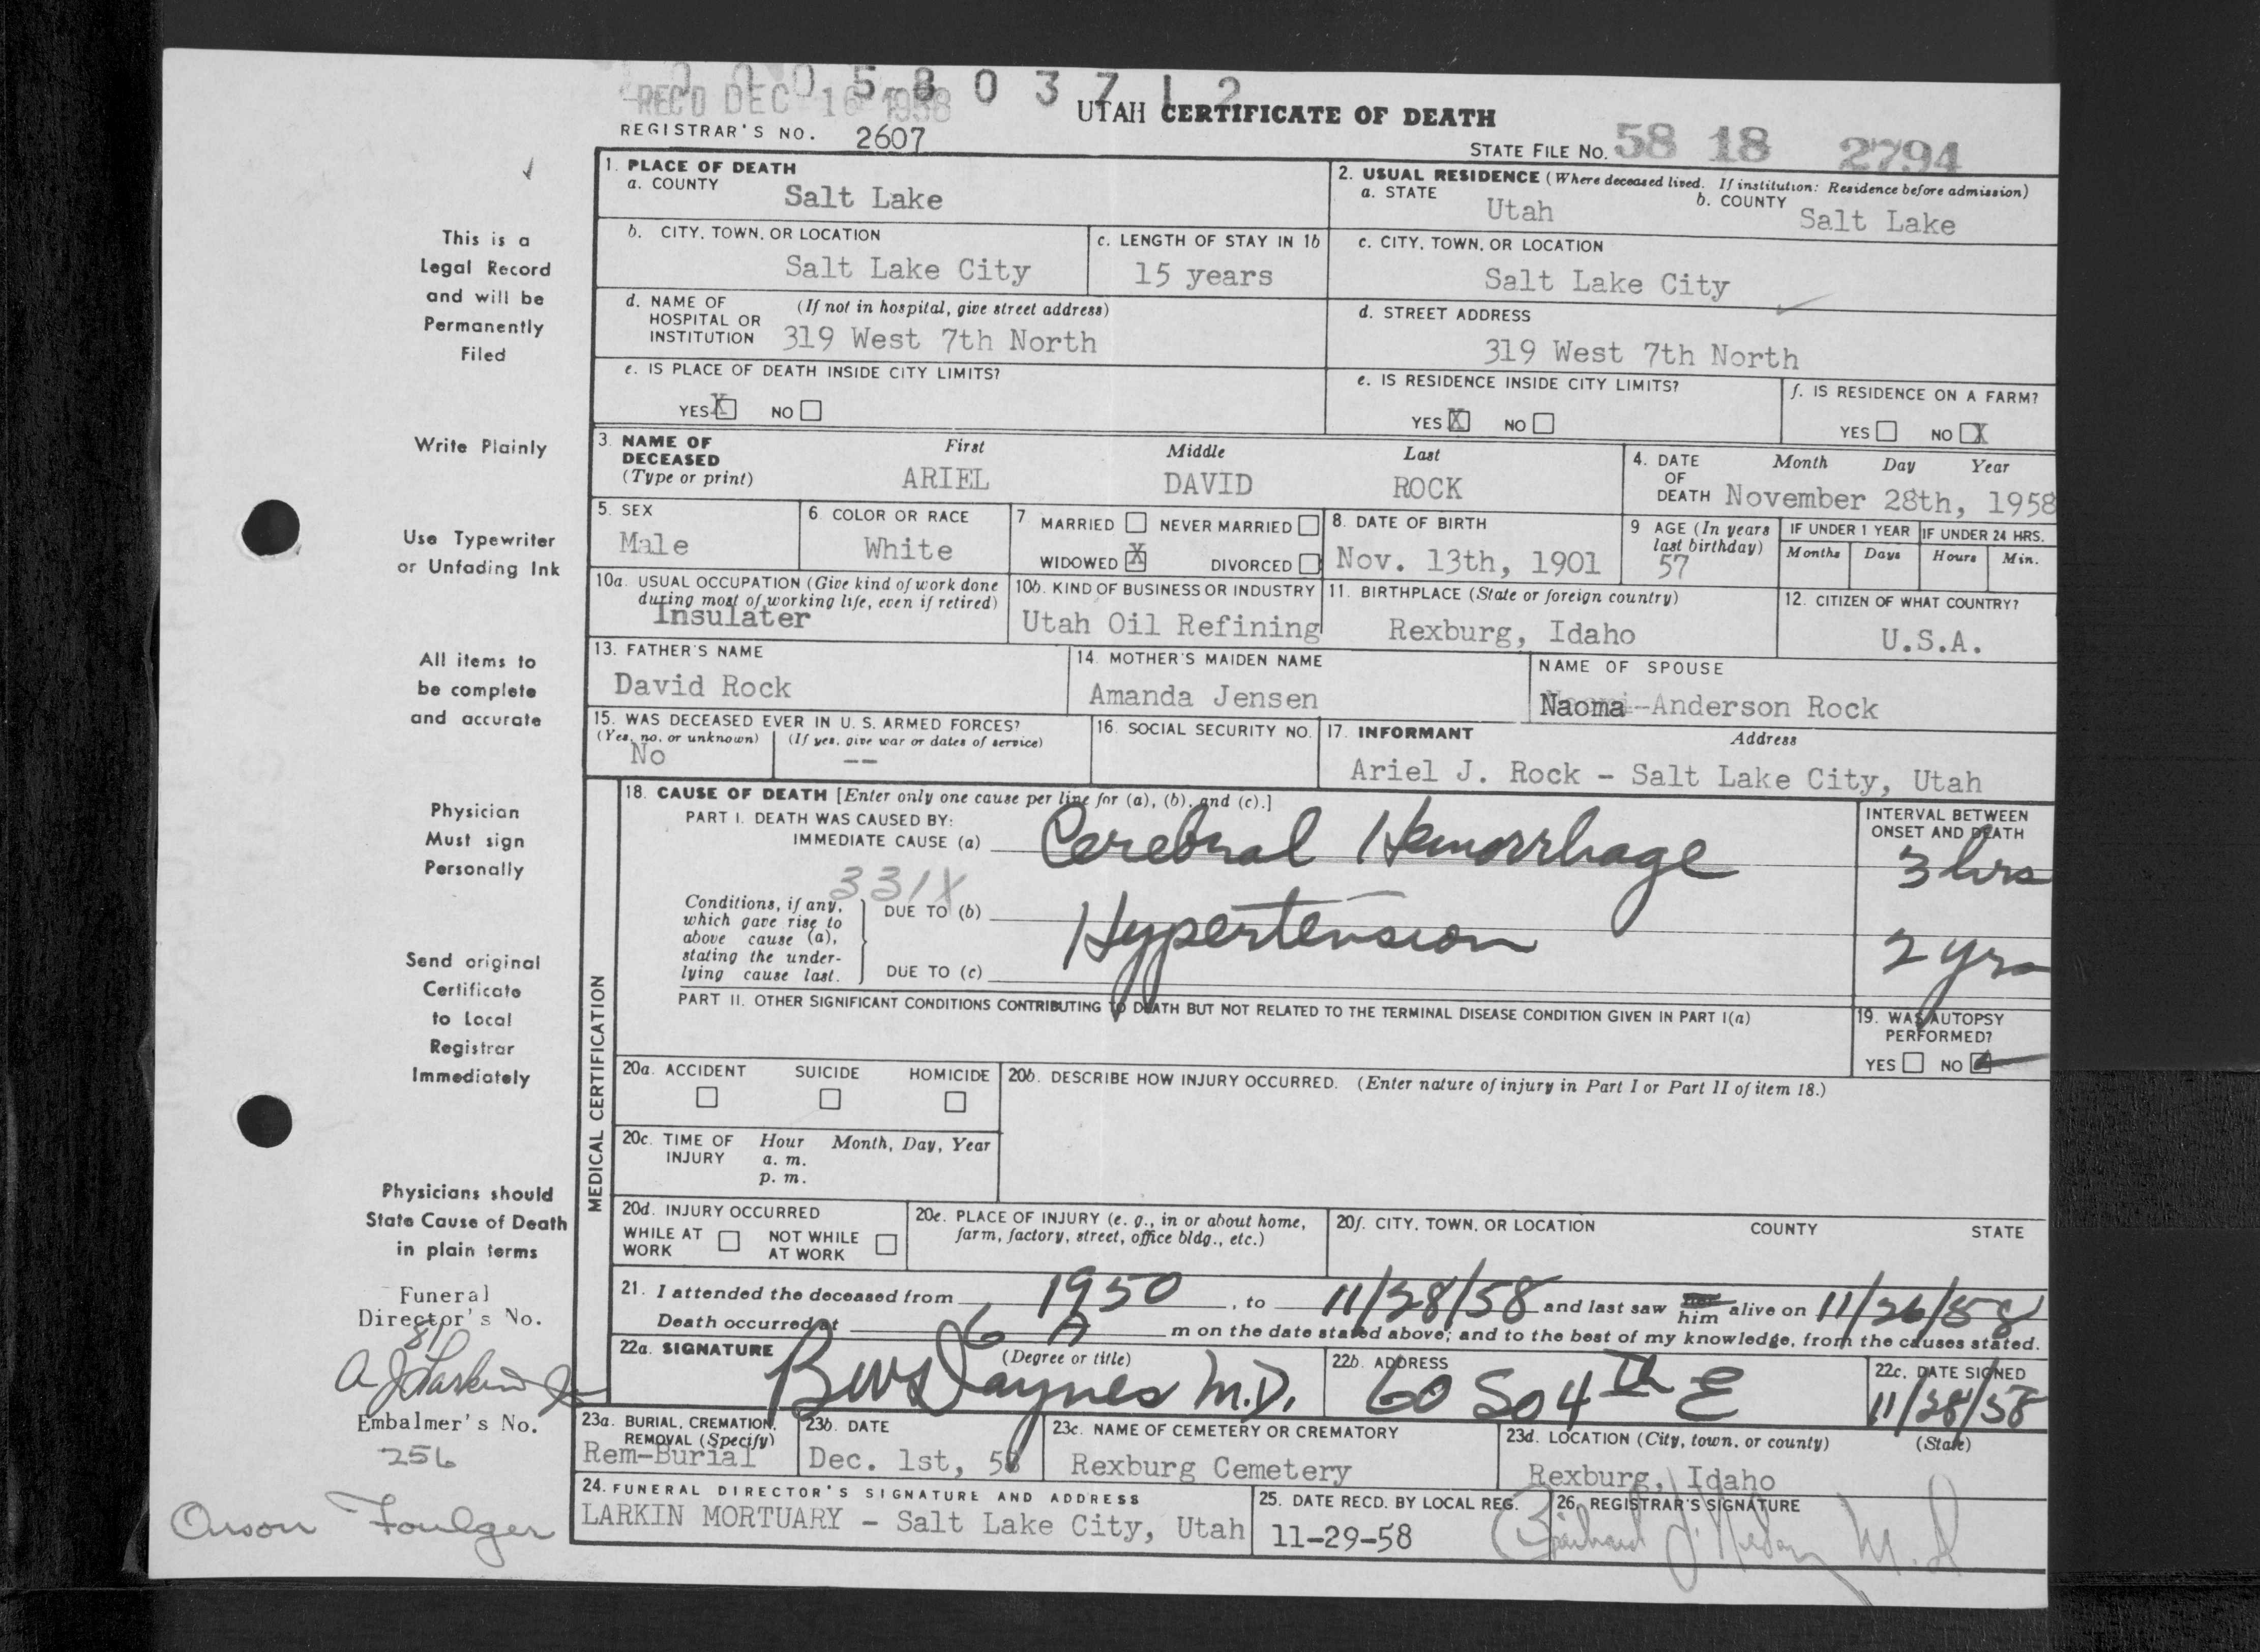 0 0 0 5 8 0 3 7 1 2
REC'D DEC 16 1958
UTAH CERTIFICATE OF DEATH
REGISTRAR'S NO. 2607
STATE FILE NO. 58 18 2794
This is a
Legal Record
and will be
Permanently
Filed
Write Plainly
Use Typewriter
or Unfading Ink
All items to
be complete
and accurate
Physician
Must sign
Personally
Send original
Certificate
to Local
Registrar
Immediately
Physicians should
State Cause of Death
in plain terms
Funeral
Director's No.
81
A J Larkin Jr
Embalmer's No.
256
Orson Foulger
1. PLACE OF DEATH
a. COUNTY
Salt Lake
2. USUAL RESIDENCE (Where deceased lived. If institution: Residence before admission)
a. STATE Utah b. COUNTY Salt Lake
b. CITY, TOWN, OR LOCATION
Salt Lake City
c. LENGTH OF STAY IN 1b
15 years
c. CITY, TOWN, OR LOCATION
Salt Lake City
d. NAME OF (If not in hospital, give street address)
HOSPITAL OR
INSTITUTION 319 West 7th North
d. STREET ADDRESS
319 West 7th North
e. IS PLACE OF DEATH INSIDE CITY LIMITS?
YES X NO
e. IS RESIDENCE INSIDE CITY LIMITS?
YES X NO
f. IS RESIDENCE ON A FARM?
YES NO X
3. NAME OF DECEASED (Type or print)
First Middle Last
ARIEL DAVID ROCK
4. DATE OF DEATH Month Day Year
November 28th, 1958
5. SEX
Male
6. COLOR OR RACE
White
7 MARRIED NEVER MARRIED
WIDOWED X DIVORCED
8. DATE OF BIRTH
Nov. 13th, 1901
9 AGE (In years last birthday)
57
IF UNDER 1 YEAR IF UNDER 24 HRS.
Months Days Hours Min.
10a. USUAL OCCUPATION (Give kind of work done
during most of working life, even if retired)
Insulater
10b. KIND OF BUSINESS OR INDUSTRY
Utah Oil Refining
11. BIRTHPLACE (State or foreign country)
Rexburg, Idaho
12. CITIZEN OF WHAT COUNTRY?
U.S.A.
13. FATHER'S NAME
David Rock
14. MOTHER'S MAIDEN NAME
Amanda Jensen
NAME OF SPOUSE
Naoma Anderson Rock
15. WAS DECEASED EVER IN U. S. ARMED FORCES?
(Yes, no, or unknown) (If yes, give war or dates of service)
No --
16. SOCIAL SECURITY NO.
17. INFORMANT Address
Ariel J. Rock - Salt Lake City, Utah
MEDICAL CERTIFICATION
18. CAUSE OF DEATH [Enter only one cause per line for (a), (b), and (c).]
PART I. DEATH WAS CAUSED BY:
IMMEDIATE CAUSE (a) Cerebral Hemorrhage
INTERVAL BETWEEN
ONSET AND DEATH
3 hrs
331X
Conditions, if any,
which gave rise to
above cause (a),
stating the under-
lying cause last.
DUE TO (b) Hypertension
2 yrs
DUE TO (c)
PART II. OTHER SIGNIFICANT CONDITIONS CONTRIBUTING TO DEATH BUT NOT RELATED TO THE TERMINAL DISEASE CONDITION GIVEN IN PART I(a)
19. WAS AUTOPSY
PERFORMED?
YES NO
20a. ACCIDENT SUICIDE HOMICIDE
20b. DESCRIBE HOW INJURY OCCURRED. (Enter nature of injury in Part I or Part II of item 18.)
20c. TIME OF INJURY Hour Month, Day, Year
a. m.
p. m.
20d. INJURY OCCURRED
WHILE AT WORK NOT WHILE AT WORK
20e. PLACE OF INJURY (e. g., in or about home,
farm, factory, street, office bldg., etc.)
20f. CITY, TOWN, OR LOCATION COUNTY STATE
21. I attended the deceased from 1950, to 11/28/58 and last saw her him alive on 11/26/58
Death occurred at 6 A m on the date stated above; and to the best of my knowledge, from the causes stated.
22a. SIGNATURE (Degree or title)
M.D.
22b. ADDRESS
60 So 4th E
22c. DATE SIGNED
11/28/58
23a. BURIAL, CREMATION,
REMOVAL (Specify)
Rem-Burial
23b. DATE
Dec. 1st, 58
23c. NAME OF CEMETERY OR CREMATORY
Rexburg Cemetery
23d. LOCATION (City, town, or county) (State)
Rexburg, Idaho
24. FUNERAL DIRECTOR'S SIGNATURE AND ADDRESS
LARKIN MORTUARY - Salt Lake City, Utah
25. DATE RECD. BY LOCAL REG.
11-29-58
26. REGISTRAR'S SIGNATURE
M.D